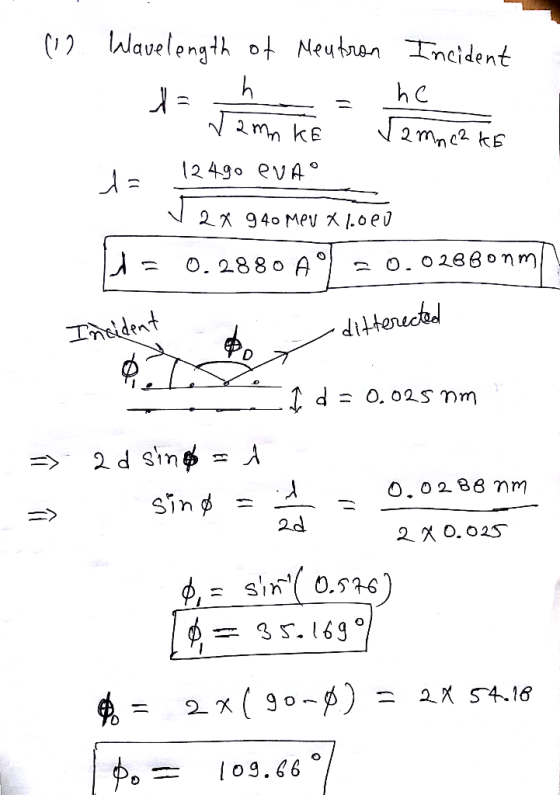 (1) Wavelength of Neutron Incident
λ = h / √2mn KE = hc / √2mnc² KE
λ = 12490 eVA° / √2 x 940 MeV x 1.0 eV
λ = 0.2880 A° = 0.02880nm
Incident ϕD differected
ϕ1
d = 0.025 nm
=> 2d sinϕ = λ
=> sinϕ = λ / 2d = 0.0288 nm / 2 x 0.025
ϕ1 = sin⁻¹(0.576)
ϕ1 = 35.169°
ϕD = 2x(90-ϕ) = 2x 54.18
ϕD = 109.66°